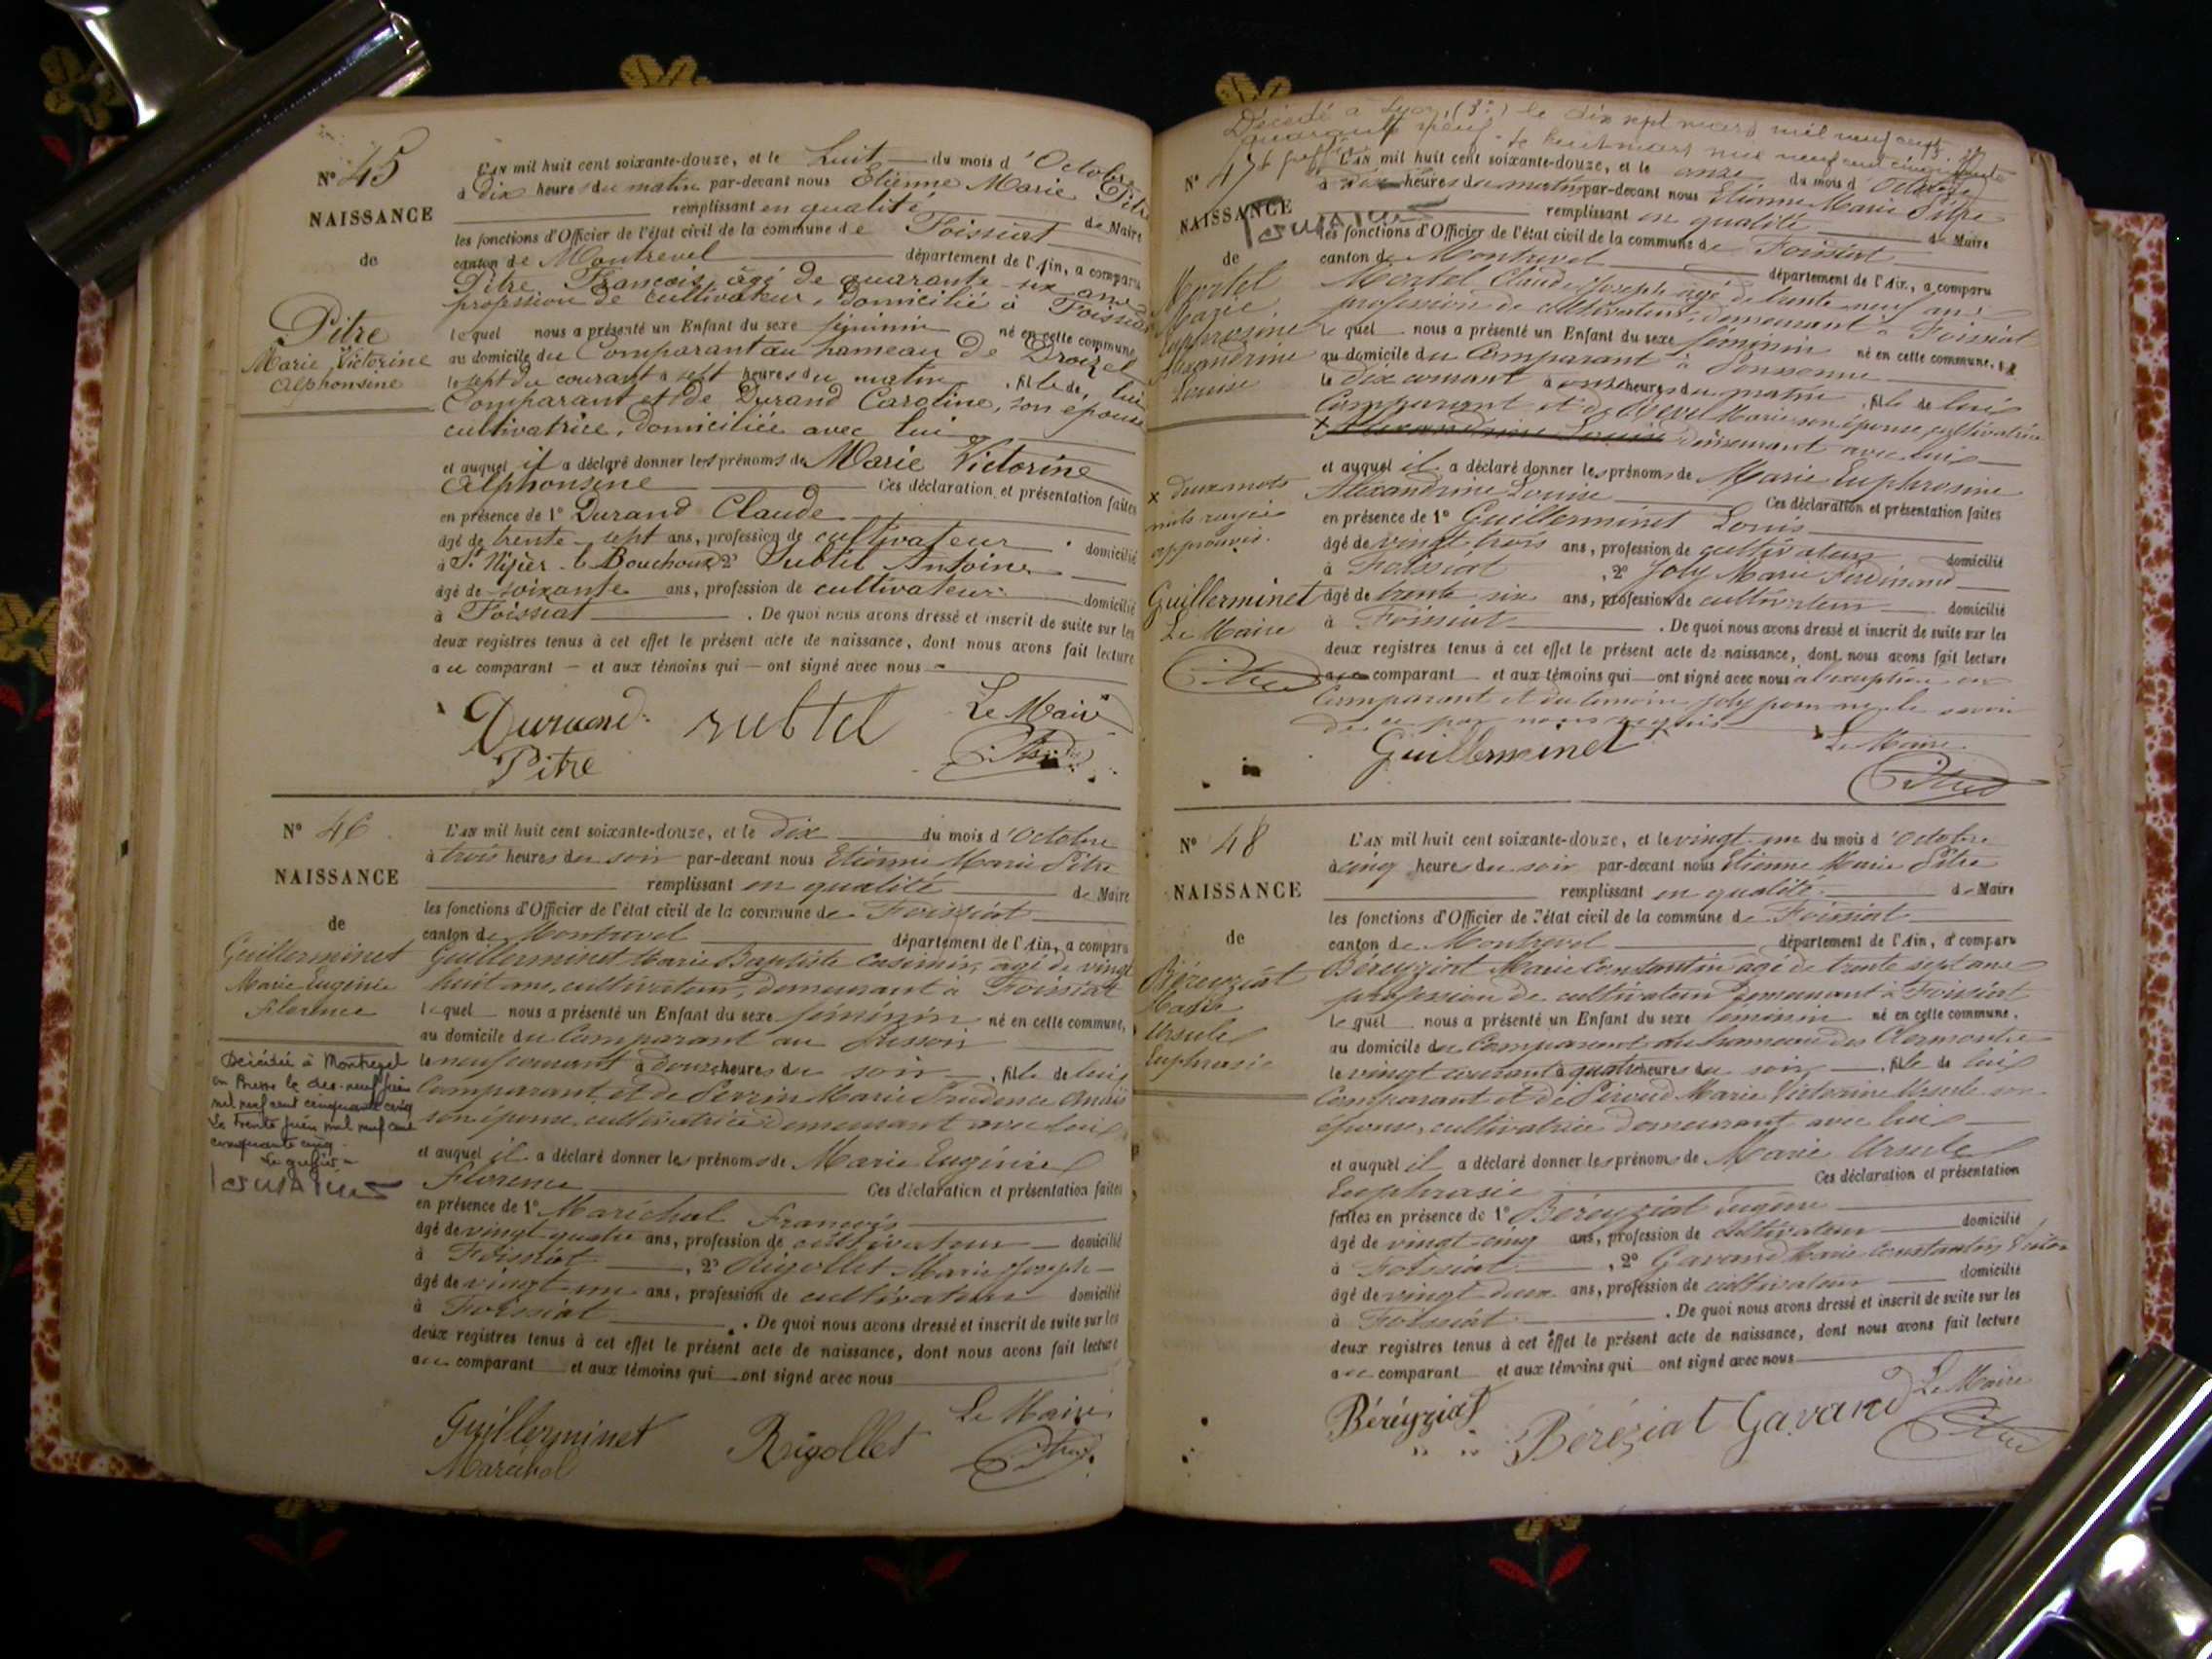 N° 45
NAISSANCE
de
Pitre
Marie Victorine
Alphonsine
L'AN mil huit cent soixante-douze, et le huit du mois d'Octobre
à dix heures du matin par-devant nous Etienne Marie Pitre
remplissant en qualité de Maire
les fonctions d'Officier de l'état civil de la commune de Foissiat
canton de Montrevel département de l'Ain, a comparu
Pitre François, âgé de quarante-six ans
profession de cultivateur, domicilié à Foissiat
lequel nous a présenté un Enfant du sexe féminin né en cette commune,
au domicile du Comparant au hameau de
le sept du courant à sept heures du matin, fille de lui
Comparant et de Durand Caroline, son epouse
cultivatrice, domiciliée avec lui
et auquel il a déclaré donner les prénoms de Marie Victorine
Alphonsine Ces déclaration et présentation faites
en présence de 1° Durand Claude
âgé de trente-sept ans, profession de cultivateur domicilié
à St Nizier-le Bouchoux 2° Subtil Antoine
âgé de soixante ans, profession de cultivateur domicilié
à Foissiat. De quoi nous avons dressé et inscrit de suite sur les
deux registres tenus à cet effet le présent acte de naissance, dont nous avons fait lecture
au comparant et aux témoins qui ont signé avec nous
Durand Le Maire
Pitre Pitre
N° 46
NAISSANCE
de
Guillerminet
Marie Eugénie
Florence
Décédée à Montrevel
en Bresse le dix-neuf juin
mil neuf cent cinquante cinq
Le trente juin mil neuf cent
cinquante cinq
Le greffier
L'AN mil huit cent soixante-douze, et le dix du mois d'Octobre
à trois heures du soir par-devant nous Etienne Marie Pitre
remplissant en qualité de Maire
les fonctions d'Officier de l'état civil de la commune de Foissiat
canton de Montrevel département de l'Ain, a comparu
Guillerminet Marie Baptiste Casimir, âgé de vingt
huit ans, cultivateur, demeurant à Foissiat
lequel nous a présenté un Enfant du sexe féminin né en cette commune,
au domicile du Comparant au
le neuf courant à douze heures du soir, fille de lui
Comparant, et de Perrin Marie Prudence
son épouse, cultivatrice demeurant avec lui
et auquel il a déclaré donner les prénoms de Marie Eugénie
Florence Ces déclaration et présentation faites
en présence de 1° Maréchal François
âgé de vingt quatre ans, profession de cultivateur domicilié
à Foissiat, 2° Rigollet Marie Joseph
âgé de vingt un ans, profession de cultivateur domicilié
à Foissiat. De quoi nous avons dressé et inscrit de suite sur les
deux registres tenus à cet effet le présent acte de naissance, dont nous avons fait lecture
au comparant et aux témoins qui ont signé avec nous
Guillerminet Rigollet Le Maire
Maréchal Pitre
Décédé à Lyon (3e) le dix sept mars mil neuf cent
quarante neuf. Le huit mars mil neuf cent cinquante
N° 47
NAISSANCE
de
Mortel
Marie
Euphrosine
Alexandrine
Louise
x deux mots
nuls rayés
approuvés.
Guillerminet
Le Maire
Pitre
L'AN mil huit cent soixante-douze, et le onze du mois d'Octobre
à dix heures du matin par-devant nous Etienne Marie Pitre
remplissant en qualité de Maire
les fonctions d'Officier de l'état civil de la commune de Foissiat
canton de Montrevel département de l'Ain, a comparu
Mortel Claude Joseph âgé de trente neuf ans
profession de cultivateur, demeurant à Foissiat
lequel nous a présenté un Enfant du sexe féminin né en cette commune,
au domicile du Comparant à
le dix courant à onze heures du matin, fille de lui
Comparant et de Marie son épouse cultivatrice
x Alexandrine Louise demeurant avec lui
et auquel il a déclaré donner les prénoms de Marie Euphrosine
Alexandrine Louise Ces déclaration et présentation faites
en présence de 1° Guillerminet Louis
âgé de vingt trois ans, profession de cultivateur domicilié
à Foissiat, 2° Joly Marie Ferdinand
âgé de trente six ans, profession de cultivateur domicilié
à Foissiat. De quoi nous avons dressé et inscrit de suite sur les
deux registres tenus à cet effet le présent acte de naissance, dont nous avons fait lecture
au comparant et aux témoins qui ont signé avec nous à l'exception du
Comparant et du témoin Joly pour ne le savoir
de ce par nous requis
Guillerminet Le Maire
Pitre
N° 48
NAISSANCE
de
Béreyziat
Marie
Ursule
Euphrasie
L'AN mil huit cent soixante-douze, et le vingt-un du mois d'Octobre
à cinq heures du soir par-devant nous Etienne Marie Pitre
remplissant en qualité de Maire
les fonctions d'Officier de l'état civil de la commune de Foissiat
canton de Montrevel département de l'Ain, a comparu
Béreyziat Marie Constantin âgé de trente sept ans
profession de cultivateur demeurant à Foissiat
lequel nous a présenté un Enfant du sexe féminin né en cette commune,
au domicile du Comparant au hameau des
le vingt courant à quatre heures du soir, fille de lui
Comparant et de Piroud Marie Victorine Ursule son
épouse, cultivatrice demeurant avec lui
et auquel il a déclaré donner les prénoms de Marie Ursule
Euphrasie Ces déclaration et présentation
faites en présence de 1° Béreyziat Eugène
âgé de vingt-cinq ans, profession de cultivateur domicilié
à Foissiat, 2° Gavand Marie Constantin
âgé de vingt deux ans, profession de cultivateur domicilié
à Foissiat. De quoi nous avons dressé et inscrit de suite sur les
deux registres tenus à cet effet le présent acte de naissance, dont nous avons fait lecture
au comparant et aux témoins qui ont signé avec nous
Béréyziat Béréziat Gavand Le Maire
Pitre